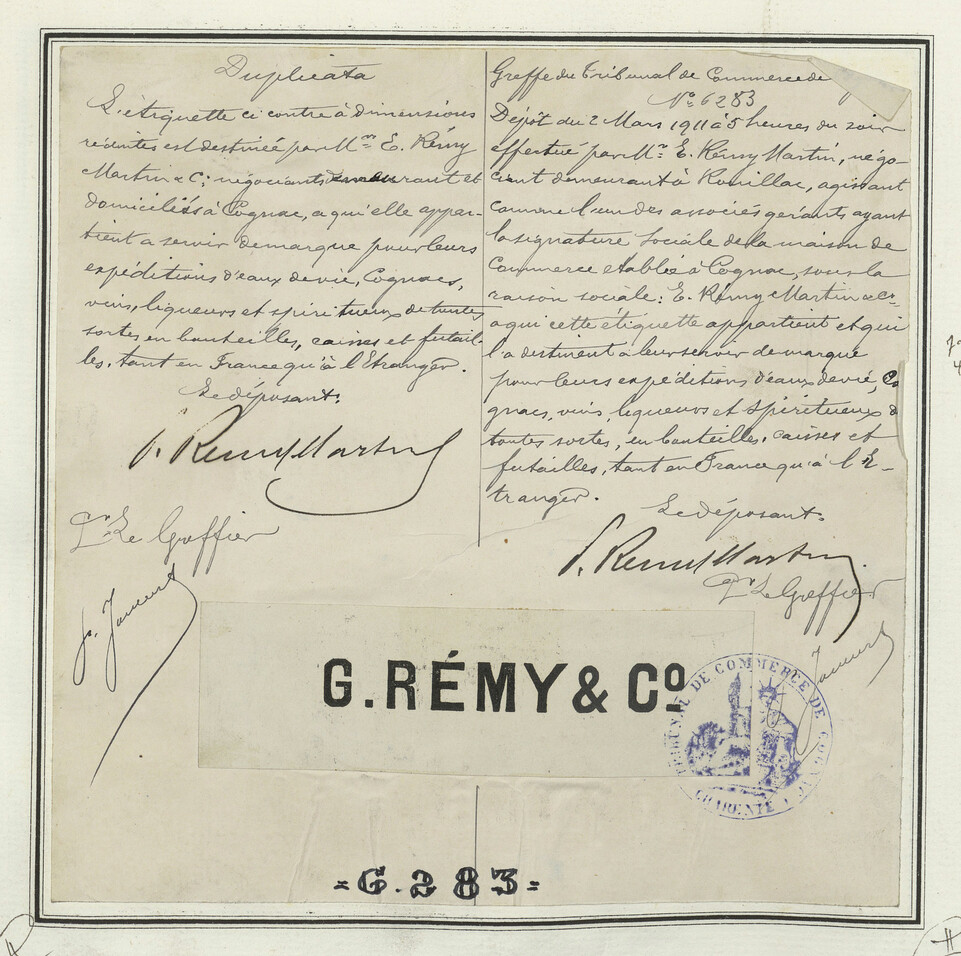 Duplicata
L'étiquette ci contre à dimensions
réduites est destinée par Mrs E. Rémy
Martin & Cie négociants demeurant et
domiciliés à Cognac, a qui elle appar-
tient a servir de marque pour leurs
expéditions d'eaux de vie, Cognacs,
vins, liqueurs et spiritueux de toutes
sortes en bouteilles, caisses et futail-
les, tant en France qu'à l'Etranger.
Le déposant.
Remy Martin
Pr Le Greffier
Greffe du Tribunal de Commerce de
No 6283
Dépôt du 2 Mars 1911 à 5 heures du soir
effectué par Mr E. Rémy Martin, négo-
ciant demeurant à Rouillac, agissant
comme l'un des associés gérants ayant
la signature sociale de la maison de
Commerce etablie à Cognac, sous la
raison sociale: E. Rémy Martin & Cie
a qui cette étiquette appartient et qui
l'a destinent à leur servir de marque
pour leurs expéditions d'eaux de vie, Co
gnacs, vins, liqueurs et spiritueux d
toutes sortes, en bouteilles, caisses et
futailles, tant en France qu'à l'E-
tranger.
Le déposant.
Remy Martin
Pr Le Greffier
G. RÉMY & Co
TRIBUNAL DE COMMERCE DE COGNAC
CHARENTE
= 6.283 =